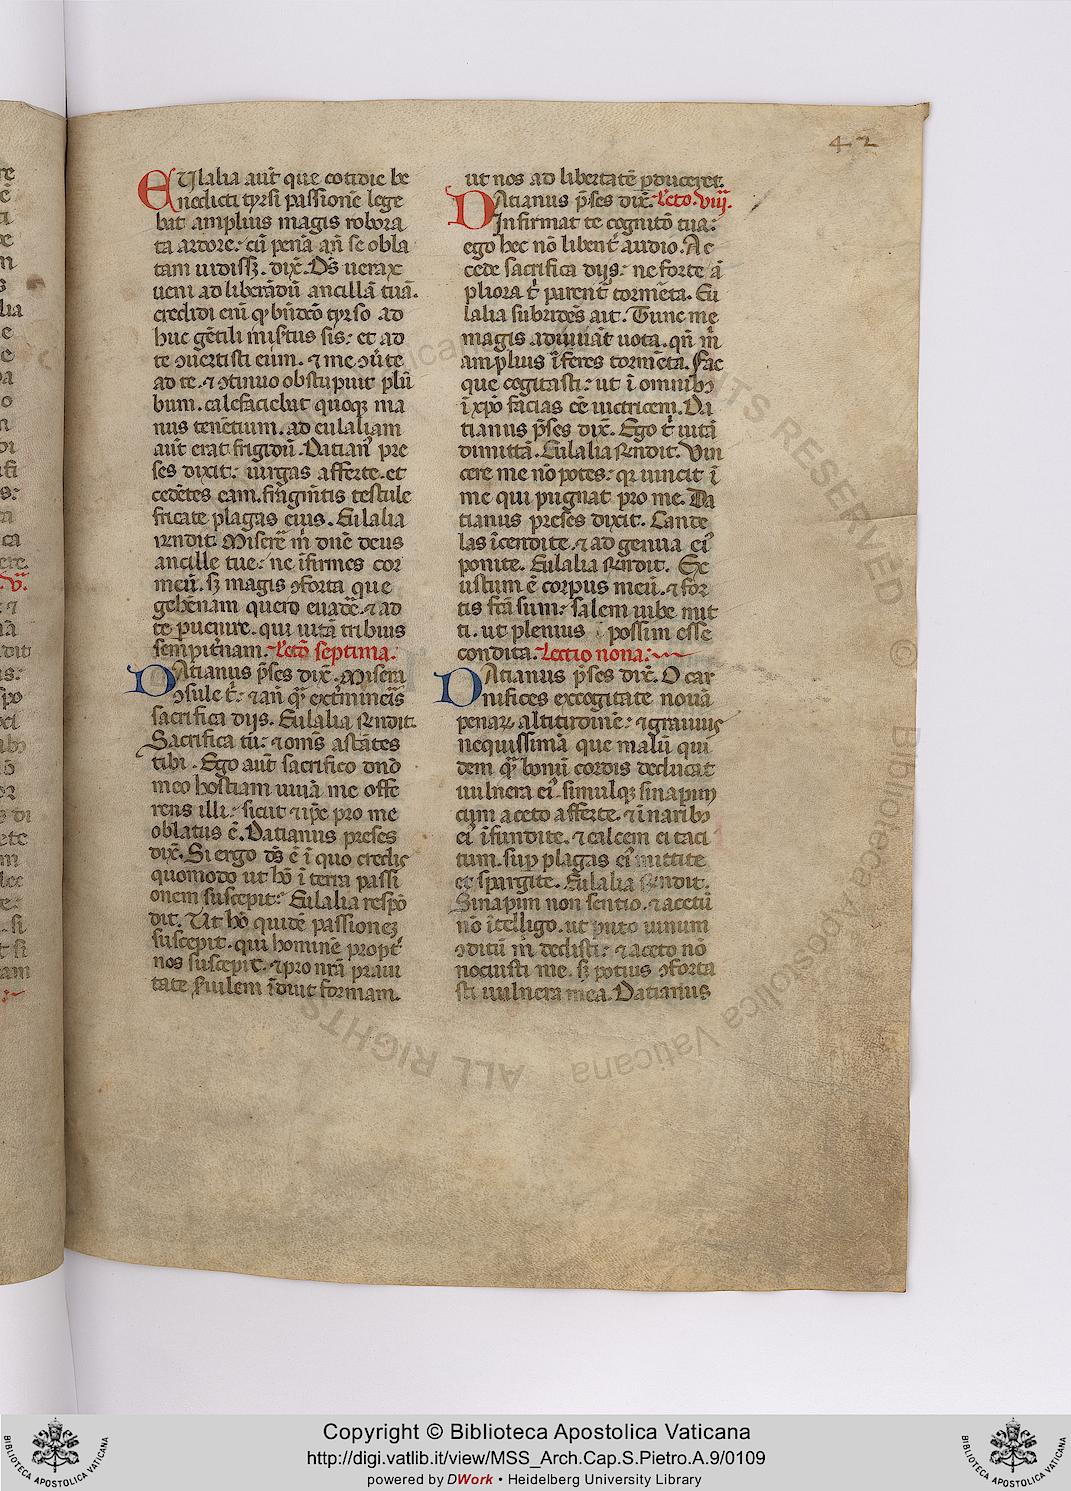 42
EUlalia aūt que cotidie be
nedicti tyrsi passionē lege
bat amplius magis robora
ta ardore: cū pena an̄ se obla
tam uidissꝫ. dix̄. Ds̄ uerax
ueni ad liberādū ancillā tuā.
credidi eni ꝙ bn̄dc̄o tyrso ad
huc gētili mistus sis: et ad
te ꝯuertisti eum. ⁊ me ꝯu̇te
ad te. ⁊ ꝯtinuo obstupuit plū
bum. calefaciebat quoqꝫ ma
nus tenētium. ad eulaliam
aūt erat frigidū. Datianꝰ pre
ses dixit: uirgas afferte. et
cedētes eam. frīgm̄tis testule
fricate plagas eius. Eulalia
rn̄dit. Miserē m̄ dn̄e deus
ancille tue: ne īfirmes cor
meū. sꝫ magis ꝯforta que
gehēnam quero euadē. ⁊ ad
te puenire. qui uitā tribuis
sempit̄nam. Lectō septima.
DAtianus p̄ses dix̄. Misera
ꝯsule t̄: ⁊ an̄ qͣ̄ ext̄mineris
sacrifica dijs. Eulalia rn̄dit.
Sacrifica tū: ⁊ om̄s astātes
tibi. Ego aūt sacrifico dn̄o
meo hostiam uiuā me offe
rens illi: sicut ⁊ ip̄e pro me
oblatus ē. Datianus preses
dix̄. Si ergo ds̄ ē ī quo credis
quomodo ut hō ī terra passi
onem suscepit: Eulalia respō
dit. Ut hō quidē passionez
suscepit. qui hominē propt̄
nos suscepit. ⁊ pro nr̄a praui
tate s̄uilem īduit formam.
ut nos ad libertatē pduceret.
DAtianus p̄ses dix̄. Lectō. viij.
Infirmat te cognitō tua:
ego hec nō libent̄ audio. Ac
cede sacrifica dijs: ne forte ā
pliora t̄ parent̄ tormēta. Eu
lalia subridēs ait. Tunc me
magis adiuuāt uota. qn̄ m̄
amplius īferes tormēta. Fac
que cogitasti: ut ī omnibꝫ
ī xp̄o facias eē uictricem. Da
tianus p̄ses dix̄. Ego t̄ uitā
dimittā. Eulalia rn̄dit. Vin
cere me nō potes: qꝛ uincit ī
me qui pugnat pro me. Da
tianus preses dixit. Cande
las īcendite. ⁊ ad genua eiꝰ
ponite. Eulalia rn̄dit. Ex
ustum ē corpus meū. ⁊ for
tis fc̄a sum: salem iube mit
ti. ut plenius possim esse
condita. Lectio nona:
DAtianus p̄ses dix̄. O car
nifices excogitate nouā
penaꝝ altitudinē: ⁊ grauius
nequissimā que malū qui
dem qͣ̄ bonū cordis deducat
uulnera eiꝰ. simulqꝫ sinapim
cum aceto afferte. ⁊ ī naribꝫ
eiꝰ īfundite. ⁊ calcem ei taci
tum. sup plagas eiꝰ mittite
et spargite. Eulalia rn̄dit.
Sinapim non sentio. ⁊ acetū
nō ītelligo. ut puto uinum
ꝯditū m̄ dedisti: ⁊ aceto nō
nocuisti me. sꝫ potius ꝯforta
sti uulnera mea. Datianus
Copyright © Biblioteca Apostolica Vaticana
http://digi.vatlib.it/view/MSS_Arch.Cap.S.Pietro.A.9/0109
powered by DWork • Heidelberg University Library
BIBLIOTECA APOSTOLICA VATICANA
BIBLIOTECA APOSTOLICA VATICANA